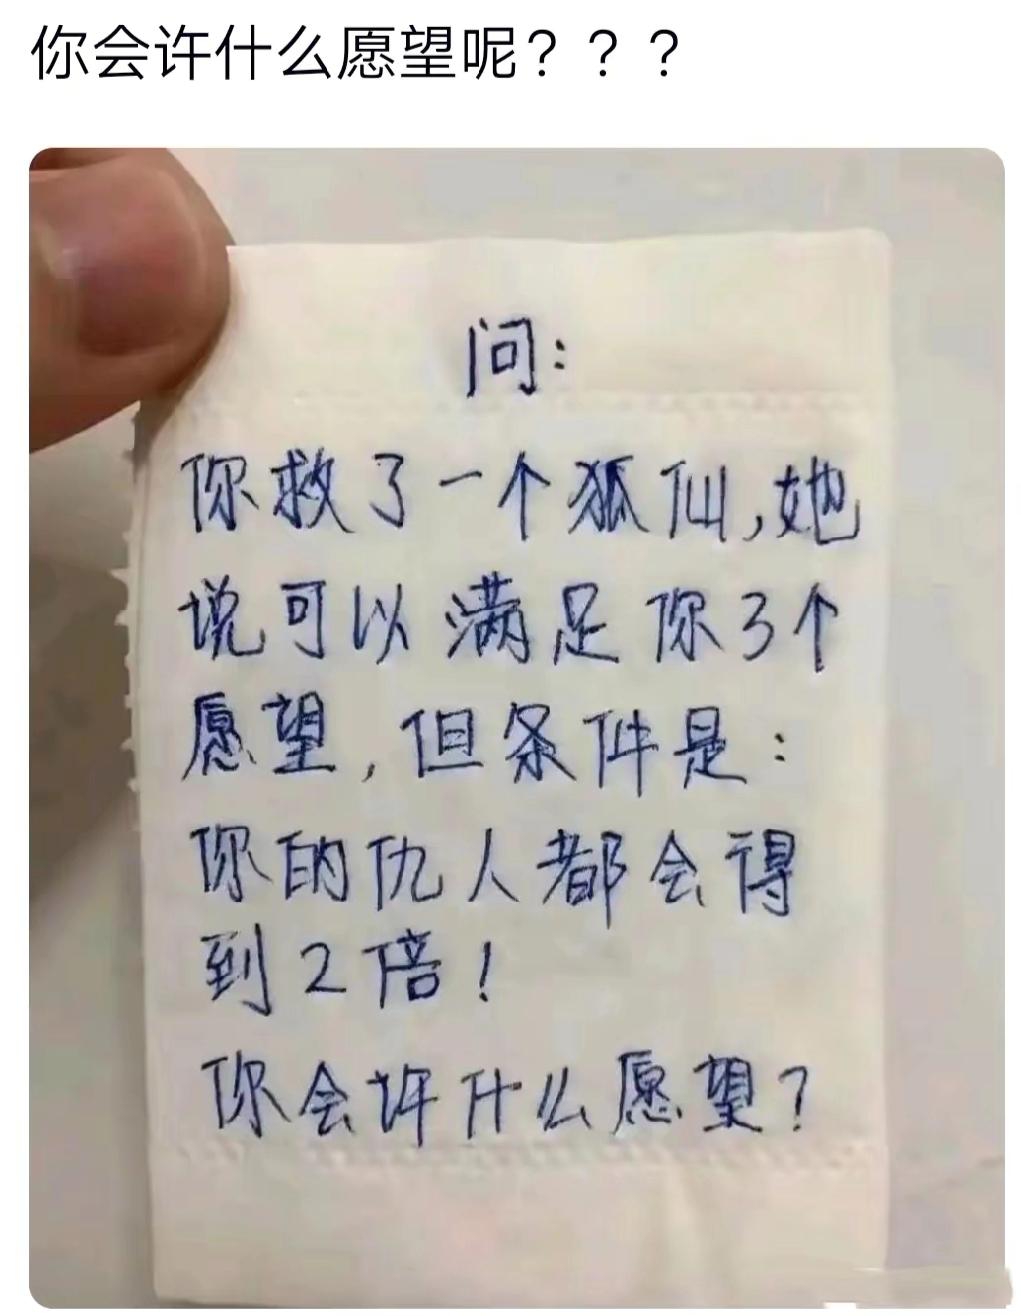 你会许什么愿望呢？？？
问：
你救了一个狐仙，她
说可以满足你3个
愿望，但条件是：
你的仇人都会得
到2倍！
你会许什么愿望？